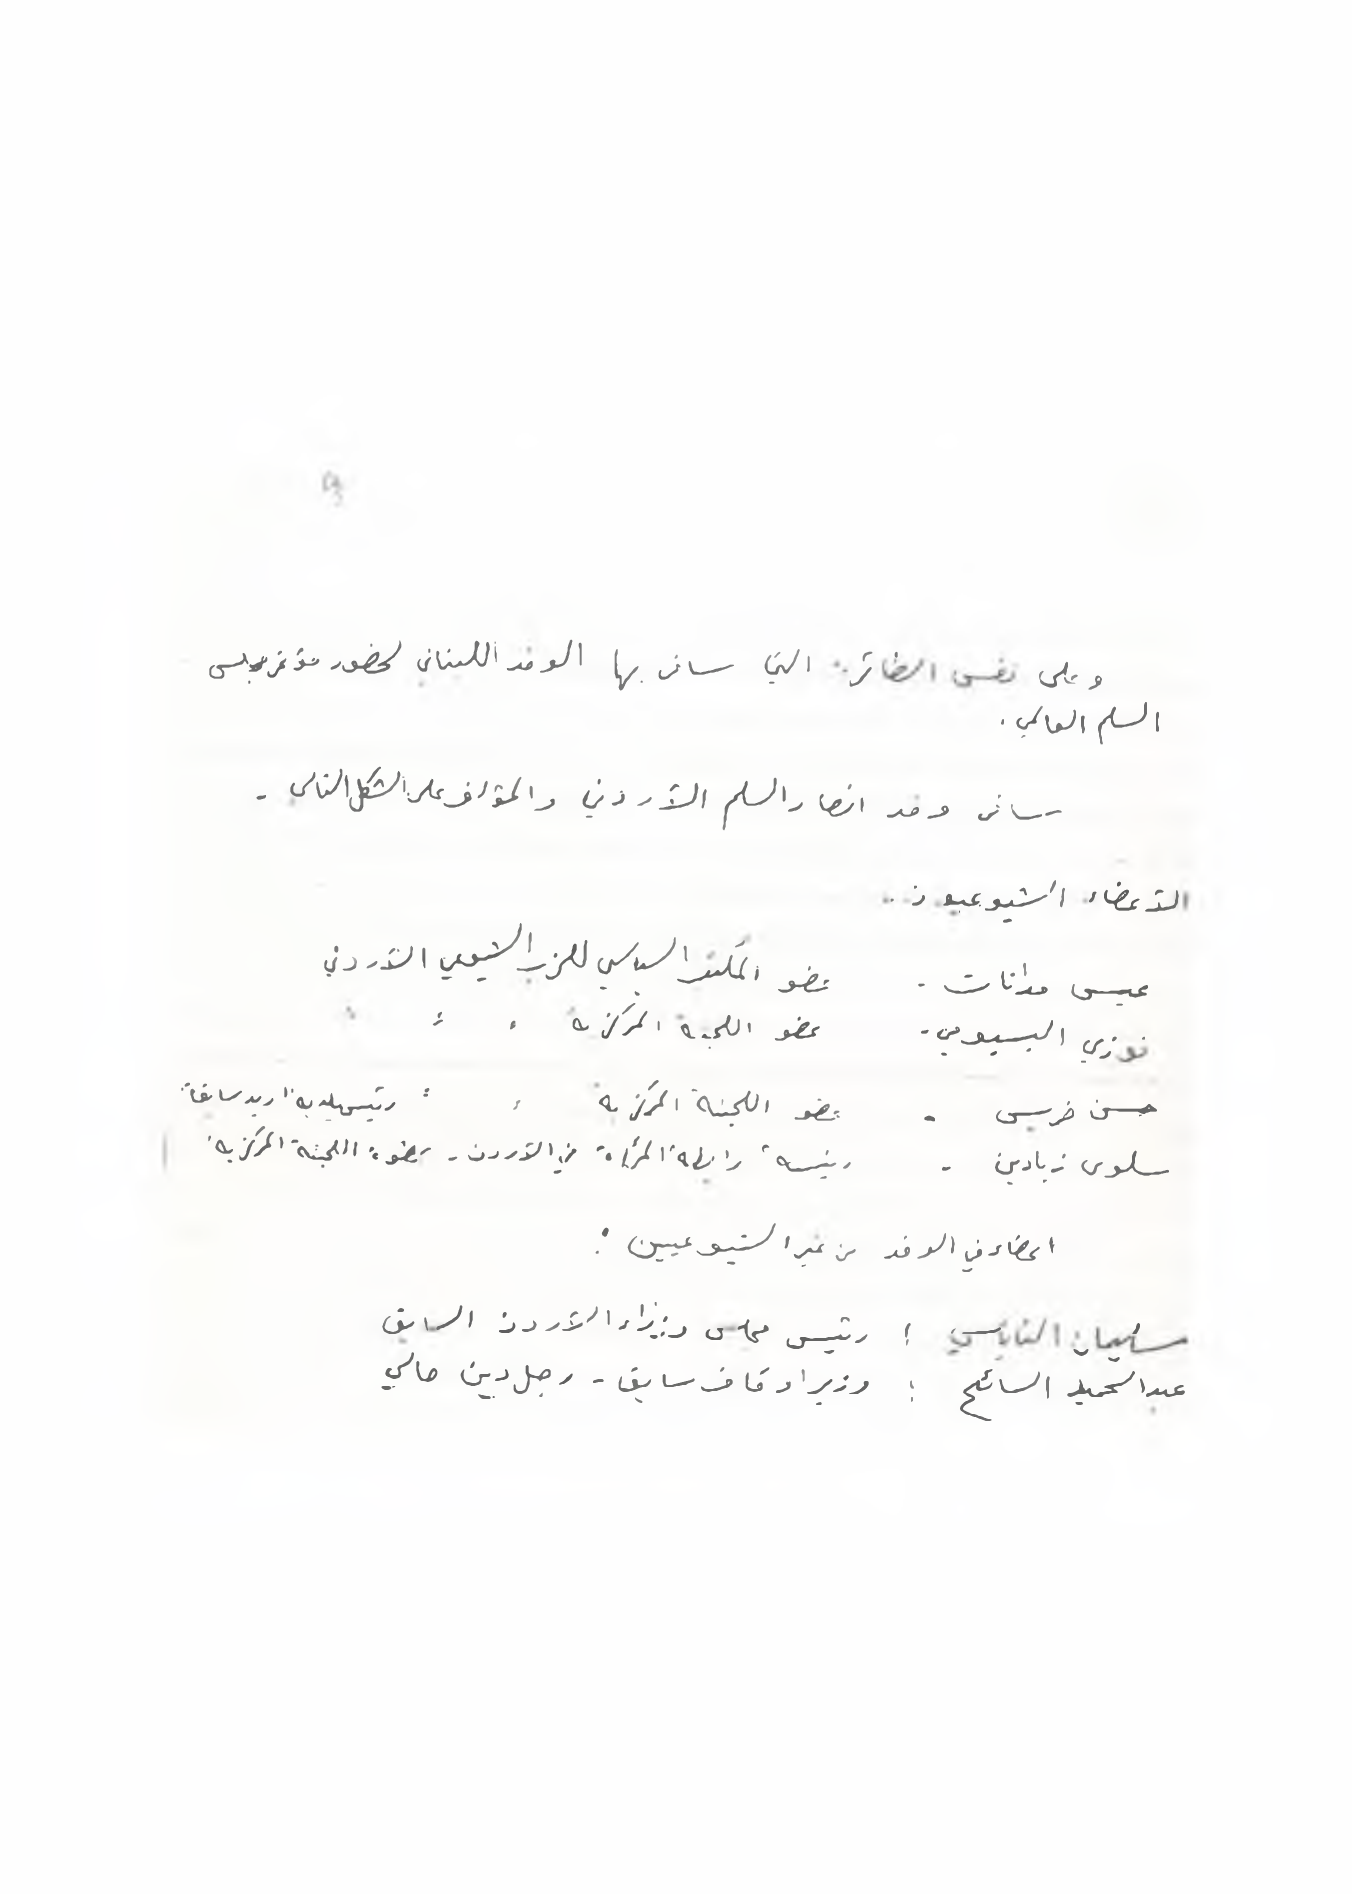 وعلى نفس الطائرة التي سافر بها الوفد اللبناني لحضور مؤتمر مجلس
السلم العالمي.
سافر وفد انصار السلم الأردني والمؤلف على الشكل التالي -
الأعضاء الشيوعيون ..
عيسى مدانات - عضو المكتب السياسي للحزب الشيوعي الأردني
فوزي البسيومي - عضو اللجنة المركزية " " "
حسن خريس - عضو اللجنة المركزية " " رئيس بلدية اربد سابقا
سلوى زيادين - رئيسة رابطة المرأة في الأردن - عضوة اللجنة المركزية
اعضاء في الوفد من غير الشيوعيين :
سليمان النابلسي : رئيس مجلس وزراء الأردن السابق
عبد الحميد السائح : وزير اوقاف سابق - رجل دين حالي